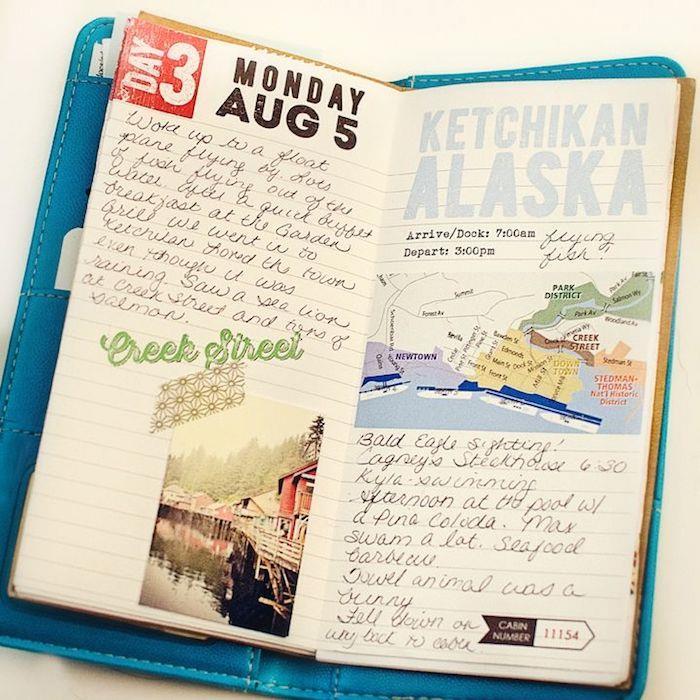 DAY 3
MONDAY
AUG 5
Woke up to a float
plane flying by. Lots
of fish flying out of the
water. After a quick buffet
breakfast at the Garden
Grill we went in to
Ketchikan. Loved the town
even though it was
raining. Saw a sea lion
at Creek Street and tons of
salmon.
Creek Street
KETCHIKAN
ALASKA
Arrive/Dock: 7:00am
Depart: 3:00pm
flying
fish!
Summit
Forest Av
PARK
DISTRICT
Park Av
Salmon Wy
Park Av
Woodland Av
CREEK
STREET
NEWTOWN
Bawden St
Edmonds
Main St
Dock St
Front St
Mill St
DOWN
TOWN
Stedman St
STEDMAN-
THOMAS
Nat'l Historic
District
Bald Eagle Sighting!
Cagney's Steakhouse 6:30
Kyla - swimming
afternoon at the pool w/
a Pina Coloda. Max
swam a lot. Seafood
barbecue.
Towel animal was a
bunny
Fell down on
way back to cabin.
CABIN
NUMBER
11154